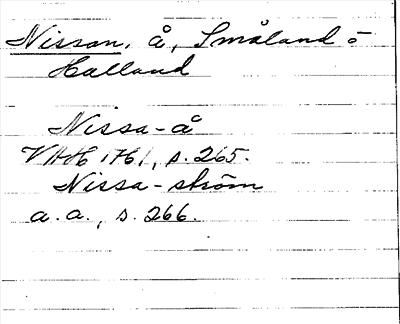 Nissan, å, Småland -
Halland
Nissa-å
VAH 1761, s. 265.
Nissa-ström
a. a., s. 266.